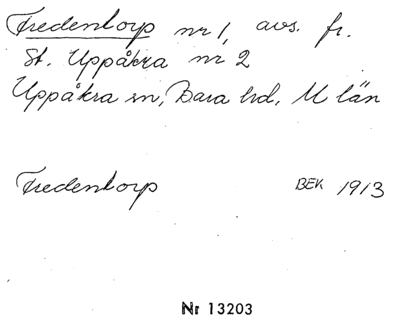 Fredentorp nr 1, avs. fr.
St. Uppåkra nr 2
Uppåkra sn, Bara hd, M län
Fredentorp BEK 1913
Nr 13203